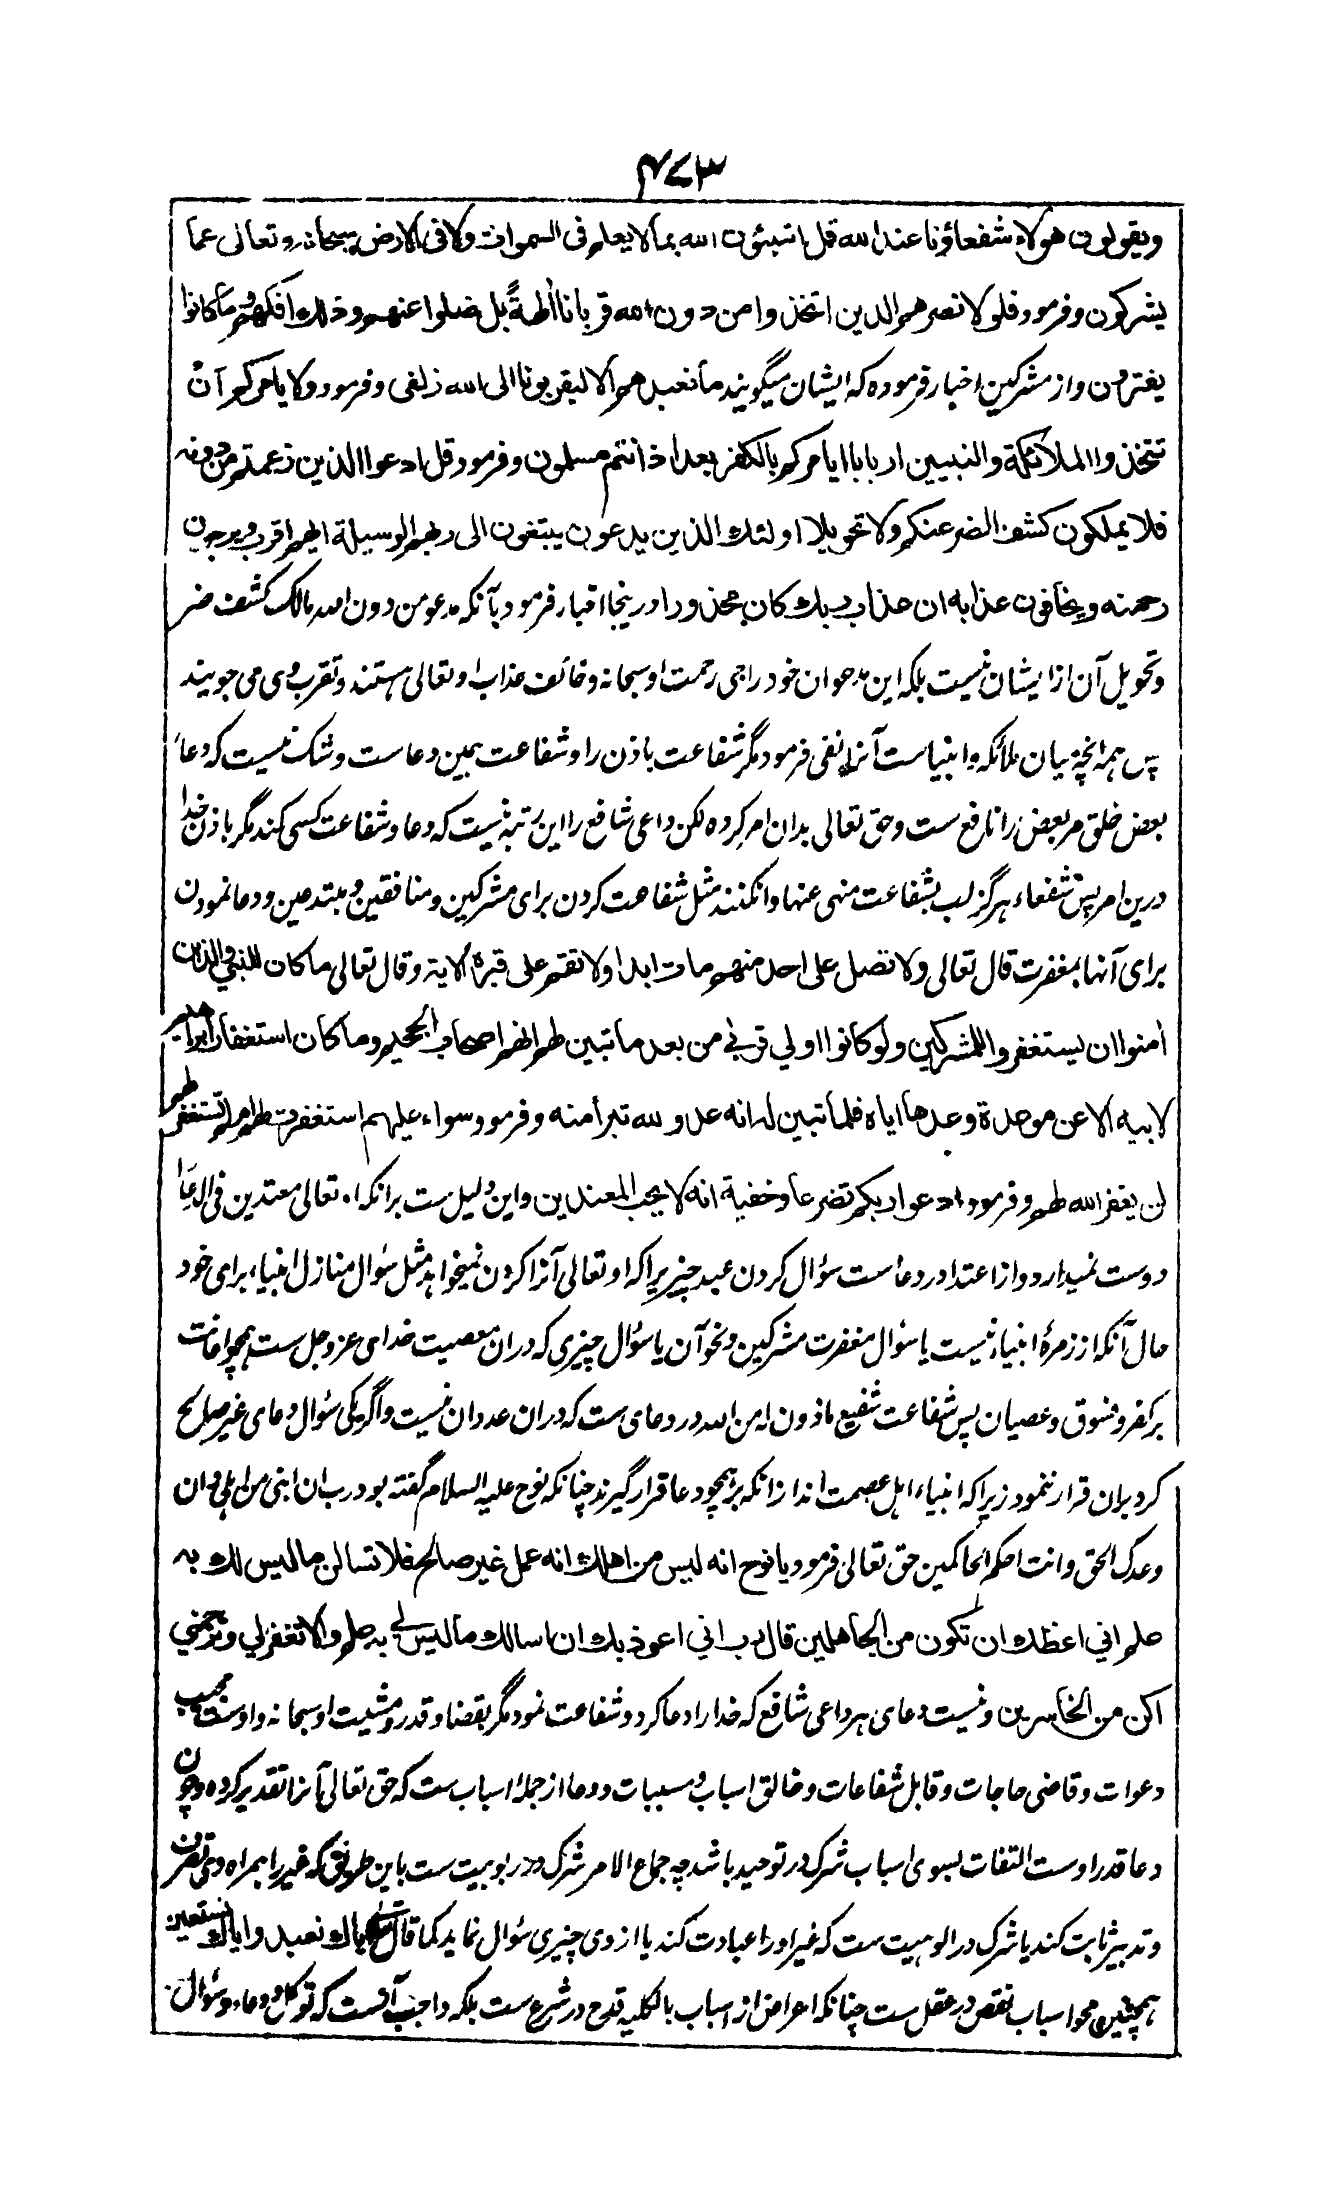 ۴۷۳
ويقولون هولاء شفعاؤنا عند الله قل اتنبئون الله بما لا يعلم في السموات ولا في الارض سبحانه وتعالى عما
يشركون و فرمود فلولا نصرهم الذين اتخذوا من دون الله قربانا الهةً بل ضلوا عنهم وذلك افكهم وما كانوا
يفترون و از مشركين اخبار فرموده که ایشان میگویند ما نعبدهم الا ليقربونا الى الله زلفى و فرمود ولا يامركم ان
تتخذوا الملائكة والنبيين اربابا ايامركم بالكفر بعد اذ انتم مسلمون و فرمود قل ادعوا الذين زعمتم من دونه
فلا يملكون كشف الضر عنكم ولا تحويلا اولئك الذين يدعون يبتغون الى ربهم الوسيلة ايهم اقرب ويرجون
رحمته ويخافون عذابه ان عذاب ربك كان محذورا درینجا اخبار فرمود بآنکه مدعو من دون الله مالک کشف ضر
و تحویل آن از ایشان نیست بلکه این مدعوان خود راجی رحمت او سبحانه و خائف عذاب او تعالی هستند و تقرب وی می جویند
پس همه انچه میان ملائکه و انبیاست آنرا نفی فرمود مگر شفاعت باذن را و شفاعت همین دعاست و شک نیست که دعاء
بعض خلق مر بعض را نافع ست و حق تعالی بدان امر کرده لکن داعی شافع را این رتبه نیست که دعا و شفاعت کسی کند مگر باذن خدا
درین امر پس شفعاء هرگز لب بشفاعت منهی عنها وا نکنند مثل شفاعت کردن برای مشرکین و منافقین و مبتدعین و دعا نمودن
برای آنها بمغفرت قال تعالی ولا تصل على احد منهم مات ابدا ولا تقم على قبره الاية وقال تعالى ما كان للنبي والذين
امنوا ان يستغفروا للمشركين ولو كانوا اولي قربى من بعد ما تبين لهم انهم اصحاب الجحيم وما كان استغفار ابراهيم
لابيه الا عن موعدة وعدها اياه فلما تبين له انه عدو لله تبرأ منه و فرمود سواء عليهم استغفرت لهم ام لم تستغفر لهم
لن يغفر الله لهم و فرمود ادعوا ربكم تضرعا وخفية انه لا يحب المعتدين و این دلیل ست برانکه او تعالی معتدین فی الدعاء
دوست نمیدارد و از اعتدا در دعاست سؤال کردن عبد چیزیرا که او تعالی آنرا کردن نمیخواهد مثل سؤال منازل انبیاء برای خود
حال آنکه از زمرهٔ انبیاء نیست یا سؤال مغفرت مشرکین و نحو آن یا سؤال چیزی که دران معصیت خدای عز و جل ست همچو اعانت
بر کفر و فسوق و عصیان پس شفاعت شفیع ماذون له من الله در دعای ست که دران عدوان نیست و اگر یکی سؤال دعای غیر صالح
کرد بران قرار ننمود زیرا که انبیاء اهل عصمت اند ازانکه بر همچو دعا قرار گیرند چنانکه نوح علیه السلام گفته بود رب ان ابنی من اهلی و ان
وعدک الحق و انت احکم الحاکمین حق تعالی فرمود يا نوح انه ليس من اهلك انه عمل غير صالح فلا تسالن ما ليس لك به
علم اني اعظك ان تكون من الجاهلين قال رب اني اعوذ بك ان اسالك ما ليس لي به علم والا تغفر لي وترحمني
اكن من الخاسرين و نیست دعای هر داعی شافع که خدا را دعا کرد و شفاعت نمود مگر بقضا و قدر و مشیت او سبحانه و اوست مجیب
دعوات و قاضی حاجات و قابل شفاعات و خالق اسباب و مسببات و دعا از جملهٔ اسباب ست که حق تعالی آنرا تقدیر کرده و چون
دعا قدر اوست التفات بسوی اسباب شرک در توحید باشد چه جماع الامر شرک در ربوبیت ست باین طریق که غیر را همراه وی تصرف
و تدبیر ثابت کند یا شرک در الوهیت ست که غیر او را عبادت کند یا از وی چیزی سؤال نماید کما قال اياك نعبد واياك نستعين
همچنین محو اسباب نقص در عقل ست چنانکه اعراض از اسباب بالکلیه قدح در شرع ست بلکه واجب آنست که توکل و دعاء و سؤال